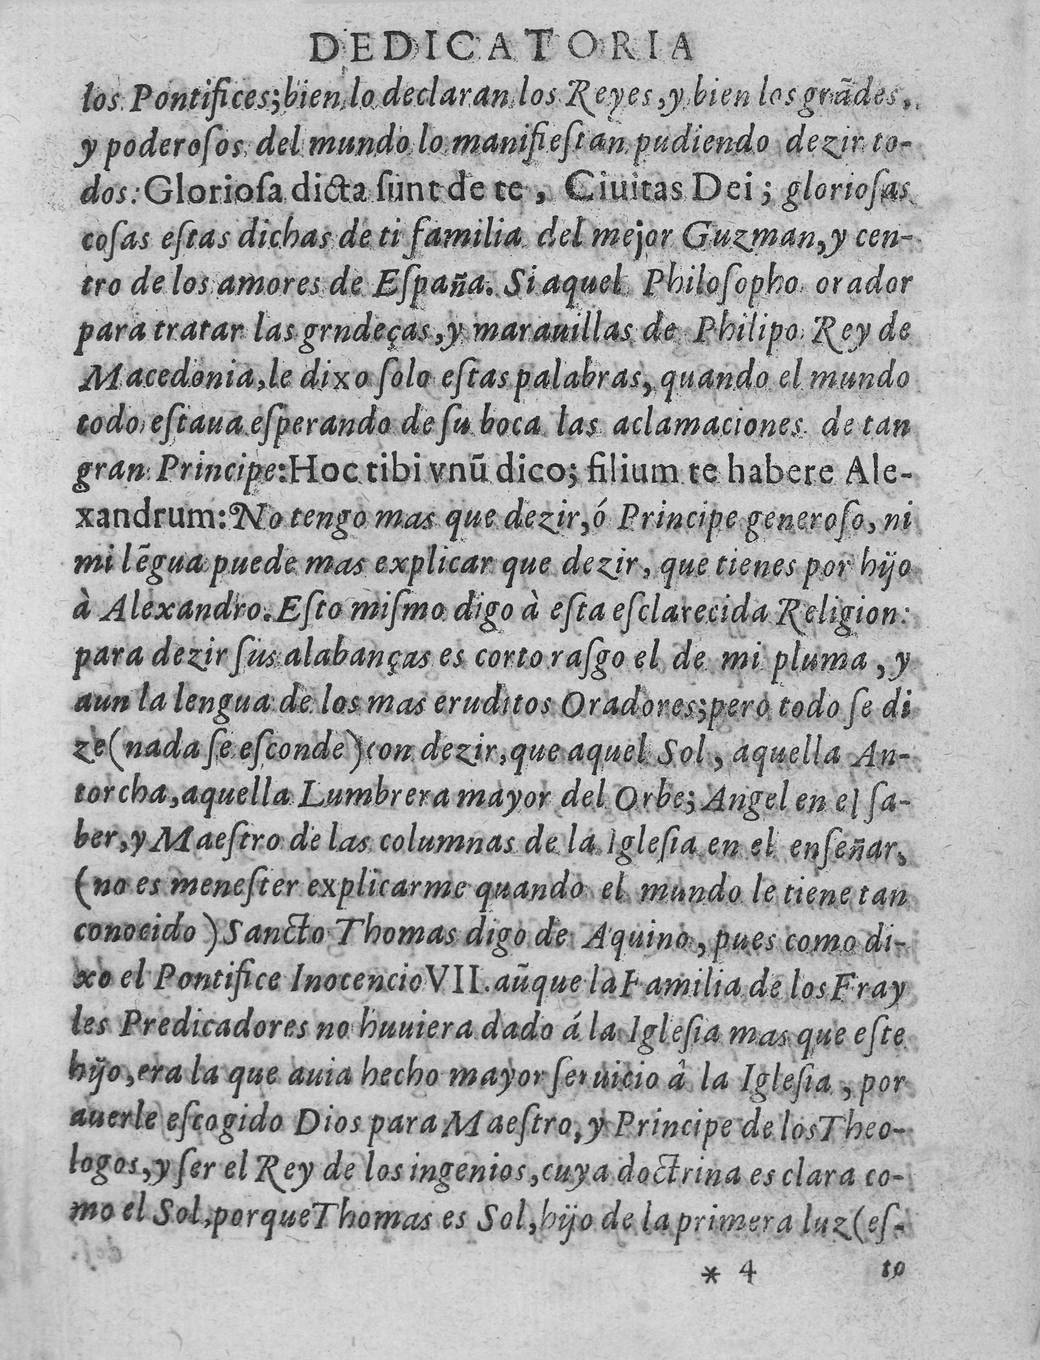 DEDICATORIA
los Pontifices;bien lo declaran los Reyes,y bien los grãdes,
y poderoſos del mundo lo manifieſtan pudiendo dezir to-
dos: Glorioſa dicta ſunt de te, Ciuitas Dei; glorioſas
coſas eſtas dichas de ti familia del mejor Guzman,y cen-
tro de los amores de Eſpaña. Si aquel Philoſopho orador
para tratar las grndeças,y marauillas de Philipo Rey de
Macedonia,le dixo ſolo eſtas palabras, quando el mundo
todo eſtaua eſperando de ſu boca las aclamaciones de tan
gran Principe:Hoc tibi vnũ dico; filium te habere Ale-
xandrum:No tengo mas que dezir,ó Principe generoſo, ni
mi lẽgua puede mas explicar que dezir, que tienes por hijo
à Alexandro.Eſto miſmo digo à eſta eſclarecida Religion:
para dezir ſus alabanças es corto raſgo el de mi pluma, y
aun la lengua de los mas eruditos Oradores;pero todo ſe di
ze(nada ſe eſconde)con dezir,que aquel Sol, aquella An-
torcha,aquella Lumbrera mayor del Orbe; Angel en el ſa-
ber,y Maeſtro de las columnas de la Igleſia en el enſeñar,
(no es meneſter explicarme quando el mundo le tiene tan
conocido)Sancto Thomas digo de Aquino, pues como di-
xo el Pontifice Inocencio VII.aũque la Familia de los Fray
les Predicadores no huuiera dado á la Igleſia mas que eſte
hijo,era la que auia hecho mayor ſeruicio â la Igleſia, por
auerle eſcogido Dios para Maeſtro,y Principe de los Theo-
logos,y ſer el Rey de los ingenios,cuya doctrina es clara co-
mo el Sol,porque Thomas es Sol,hijo de la primera luz(eſ-
* 4 to